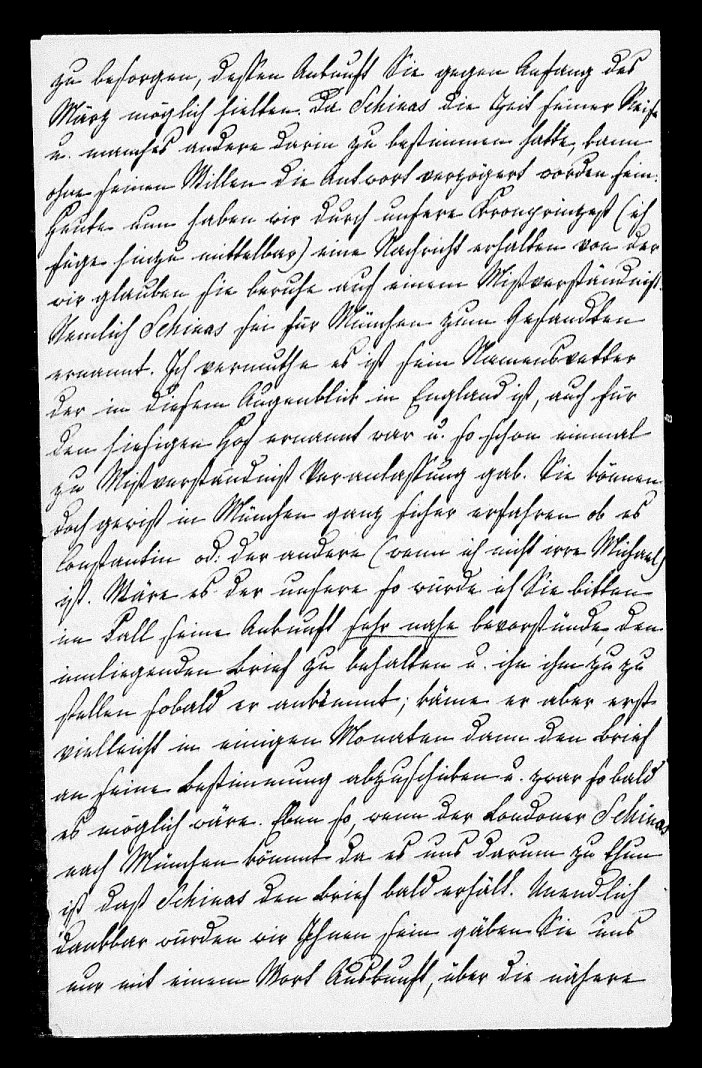 zu besorgen, dessen Ankunft Sie gegen Anfang des
März möglich hielten. Da Schinas die Zeit seiner Reise
u. manches andere darin zu bestimmen hatte, kann
ohne seinen Willen die Antwort verzögert worden sein.
Heute nun haben wir durch unsere Kronprinzeß (ich
füge hinzu mittelbar) eine Nachricht erhalten von der
wir glauben sie beruhe auf einem Mißverständniß.
Nemlich Schinas sei für München zum Gesandten
ernannt. Ich vermuthe es ist sein Namensvetter
der in diesem Augenblick in England ist, auch für
den hiesigen Hof ernannt war u. so schon einmal
zu Mißverständniß Veranlassung gab. Sie können
doch gewiß in München ganz sicher erfahren ob es
Constantin od: der andere (wenn ich nicht irre Michael)
ist. Wäre es der unsere so würde ich Sie bitten
im Fall seine Ankunft sehr nahe bevorstünde, den
inliegenden Brief zu behalten u. ihn ihm zu zu
stellen sobald er ankömmt; käme er aber erst
vielleicht in einigen Monaten dann den Brief
an seine Bestimmung abzuschicken u. zwar so bald
es möglich wäre. Eben so, wenn der Londoner Schinas
nach München kömmt da es uns darum zu thun
ist daß Schinas den Brief bald erhält. Unendlich
dankbar würden wir Ihnen sein gäben Sie uns
nur mit einem Wort Auskunft, über die nähere